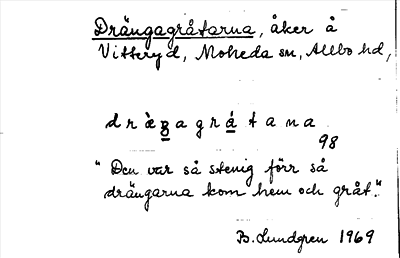 Drängagråtarna, åker å
Vitteryd, Moheda sn, Allbo hd,
d r ä̀ Ɡ a g r á t a n a
98
"Den var så stenig förr så
drängarna kom hem och gråt."
B. Lundgren 1969